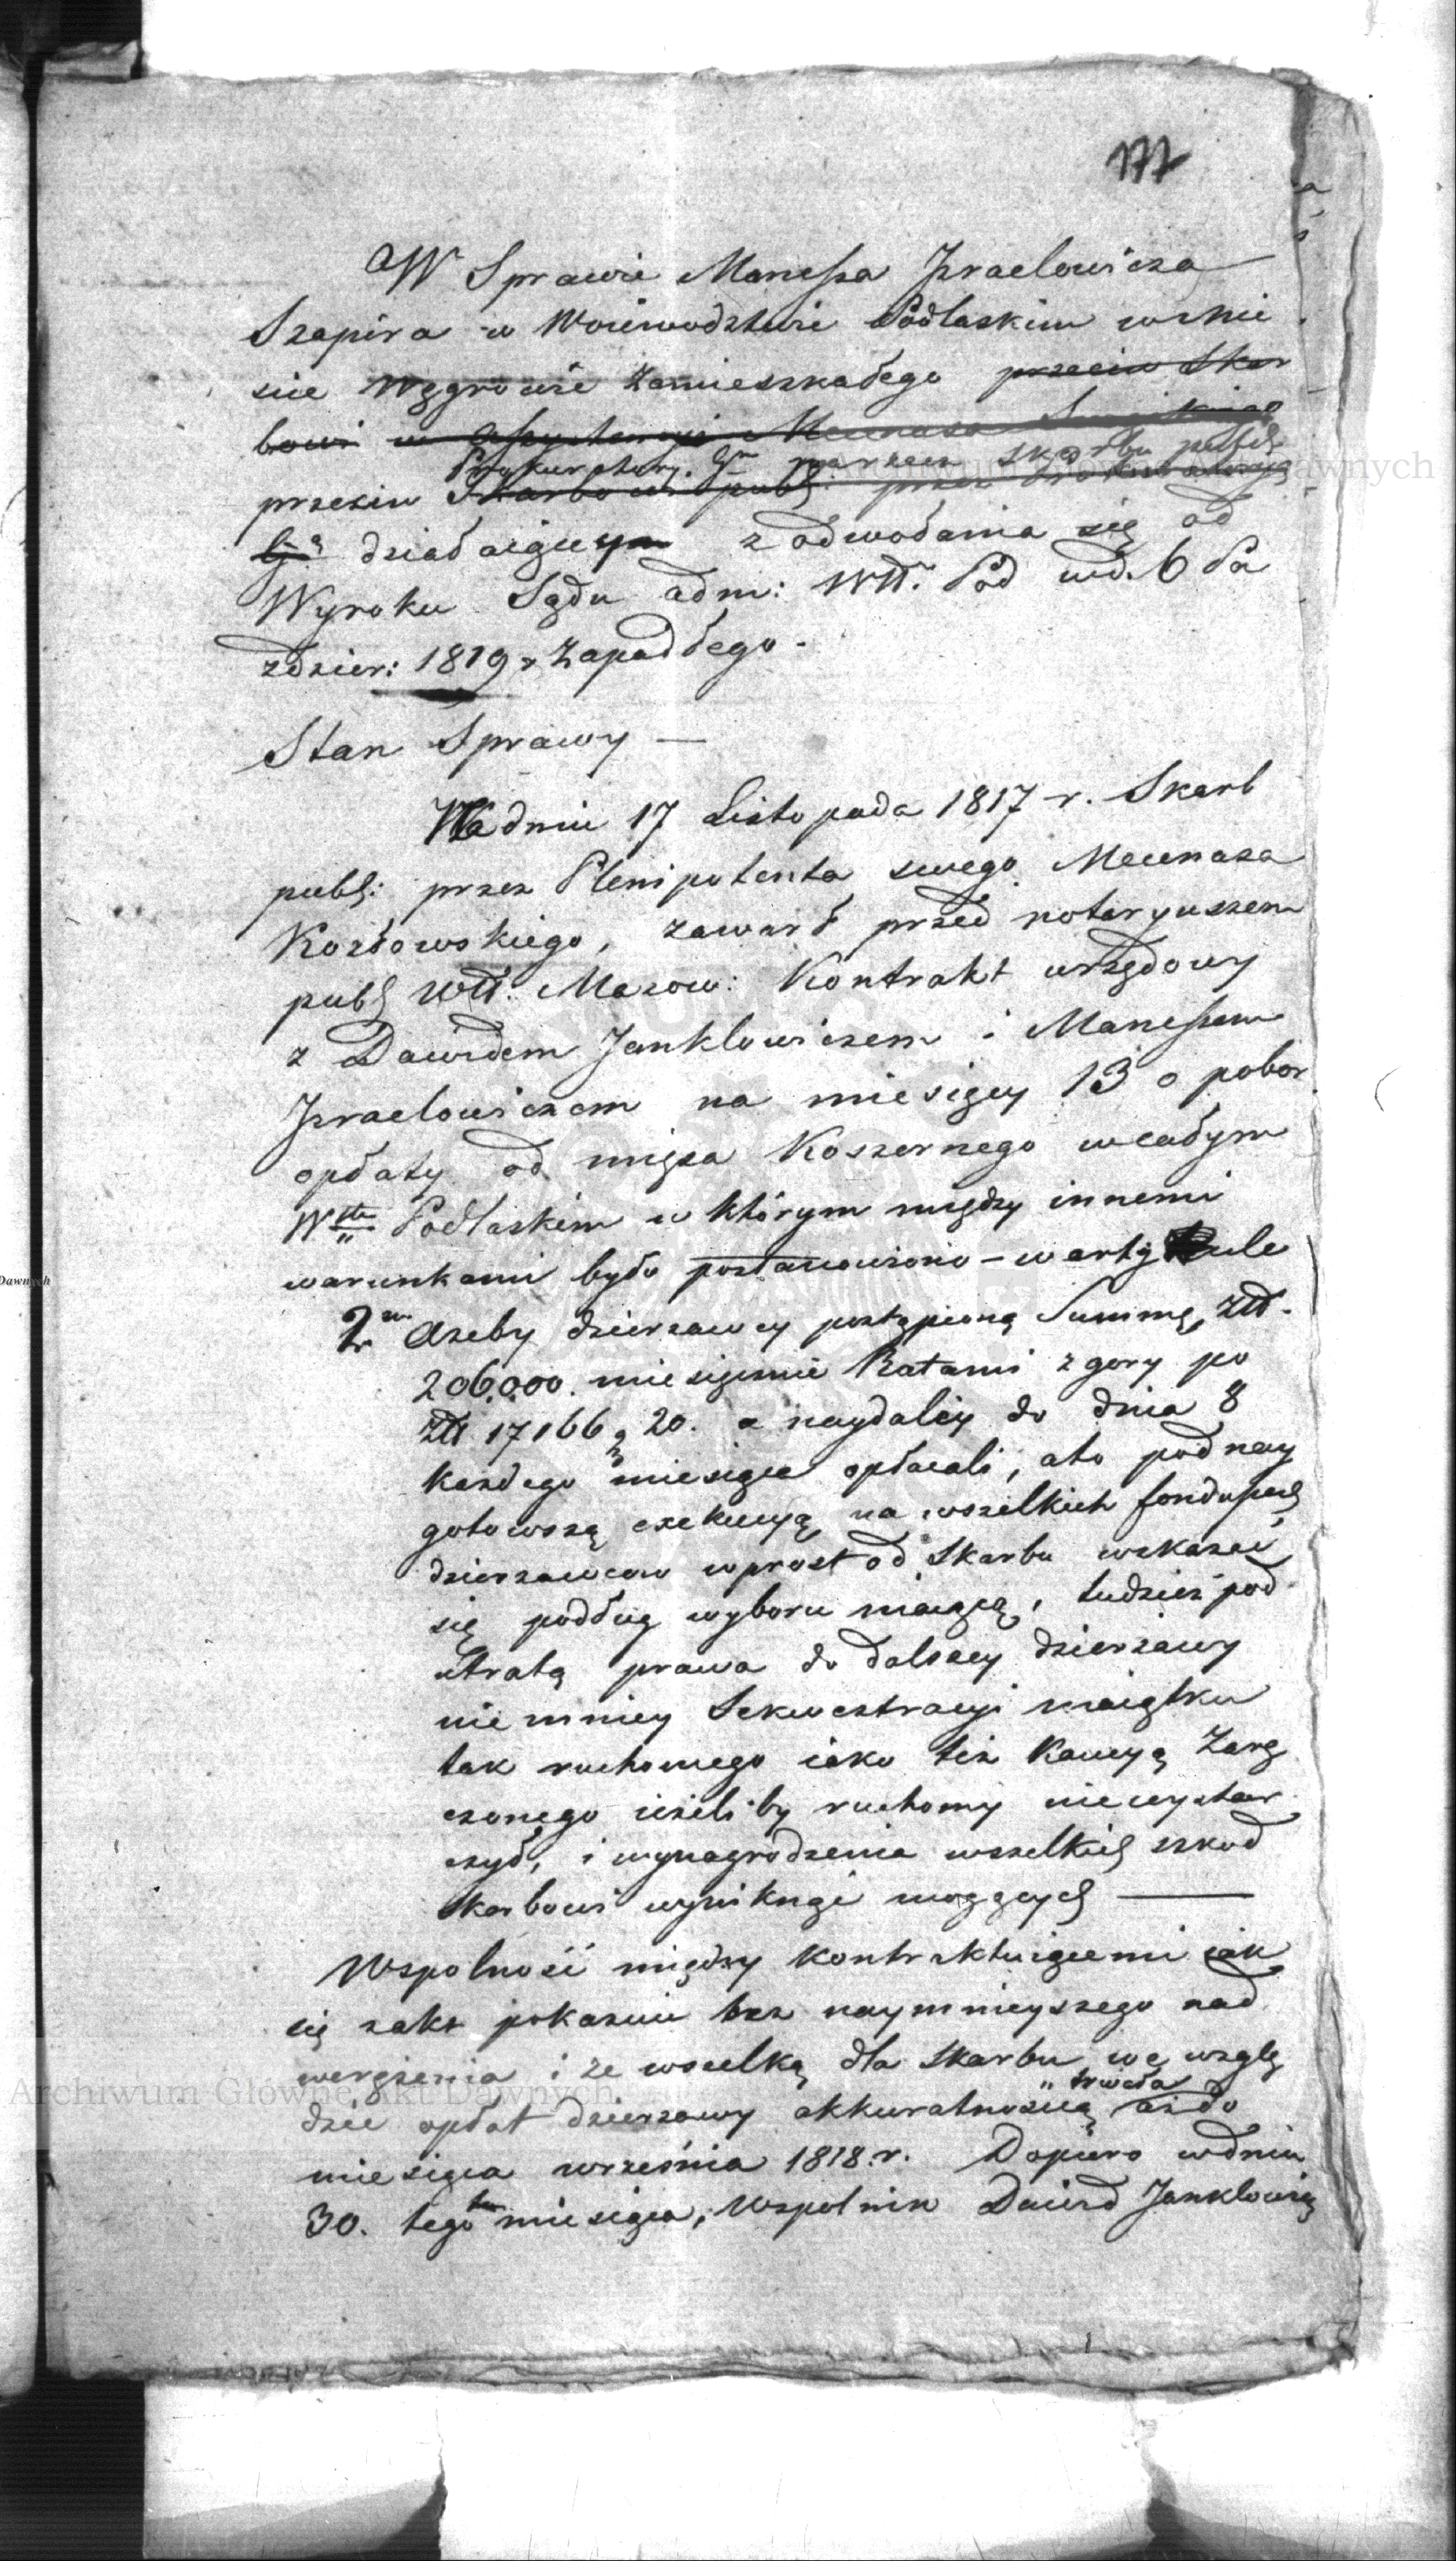 177
W Sprawie Manessa Jzraelowicza
Szapira w Woiewodztwie Podlaskim w mie
scie Węgrowie zamieszkałego przeciw Skar
bowi w assystencyi Mecenasa
Prokuratory. Gn. skarbu publ
przeciw Skarbowi publ: przez Prokuratoryą
Gą działaiącym z odwołania się od
Wyroku Sądu adm: Wtt. Pod wd. 6 Pa
zdzier: 1819 r zapadłego.
Stan Sprawy —
W dniu 17 Listopada 1817 r. Skarb
publ: przez Plenipotenta swego Mecenasa
Kozłowskiego, zawarł przed notaryuszem
publ Wtt. Mazow: Kontrakt urzędowy
z Dawidem Janklowiczem i Manessem
Jzraelowiczem na miesięcy 13 o pobor
opłaty od mięsa Koszernego w całym
Wttwie Podlaskim w którym między innemi
warunkami było postanowiono – w artykule
2m Azeby dzierzawcy postąpioną Summę, Ztt.
206,000. miesięcznie Ratami z gory po
Ztt 17166 g 20. a naydaléy do dnia 8
każdego miesiąca opłacali, a to pod nay
gotowszą exekucyą na wszelkich fonduszach
dzierzawcow wprost od Skarbu wskazać
się podług wyboru maiącą, tudzież pod
utratą prawa do dalszey dzierzawy
niemniey Sekwestracyi maiątku
tak ruchomego iako też Kaucyą Zarę
czonego ieżeliby ruchomy niewystar
czył, i wynagrodzenia wszelkich szkod
skarbowi wyniknąć mogących —
Wspolność między kontraktuiącemi iak
się z akt pokazuie bez naymnieyszego nad
werężenia i ze wszelką dla Skarbu we wzglę
dzie opłat dzierzawy akkuratnością trwała aż do
miesiąca września 1818 r. Dopiero w dniu
30. tegoż miesiąca, Wspolnik Dawid Janklowicz
Archiwum Główne Akt Dawnych